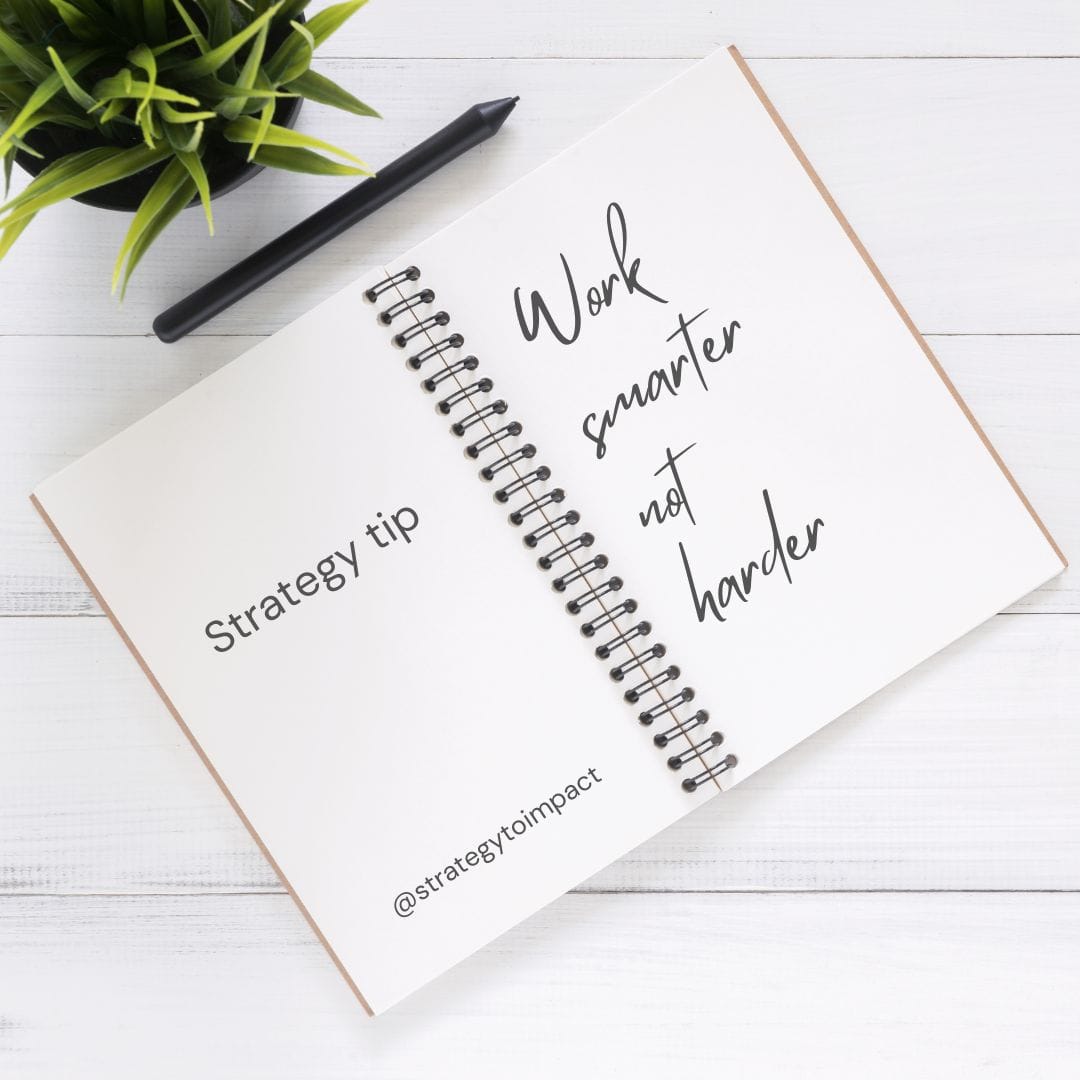 Strategy tip
@strategytoimpact
Work
smarter
not
harder